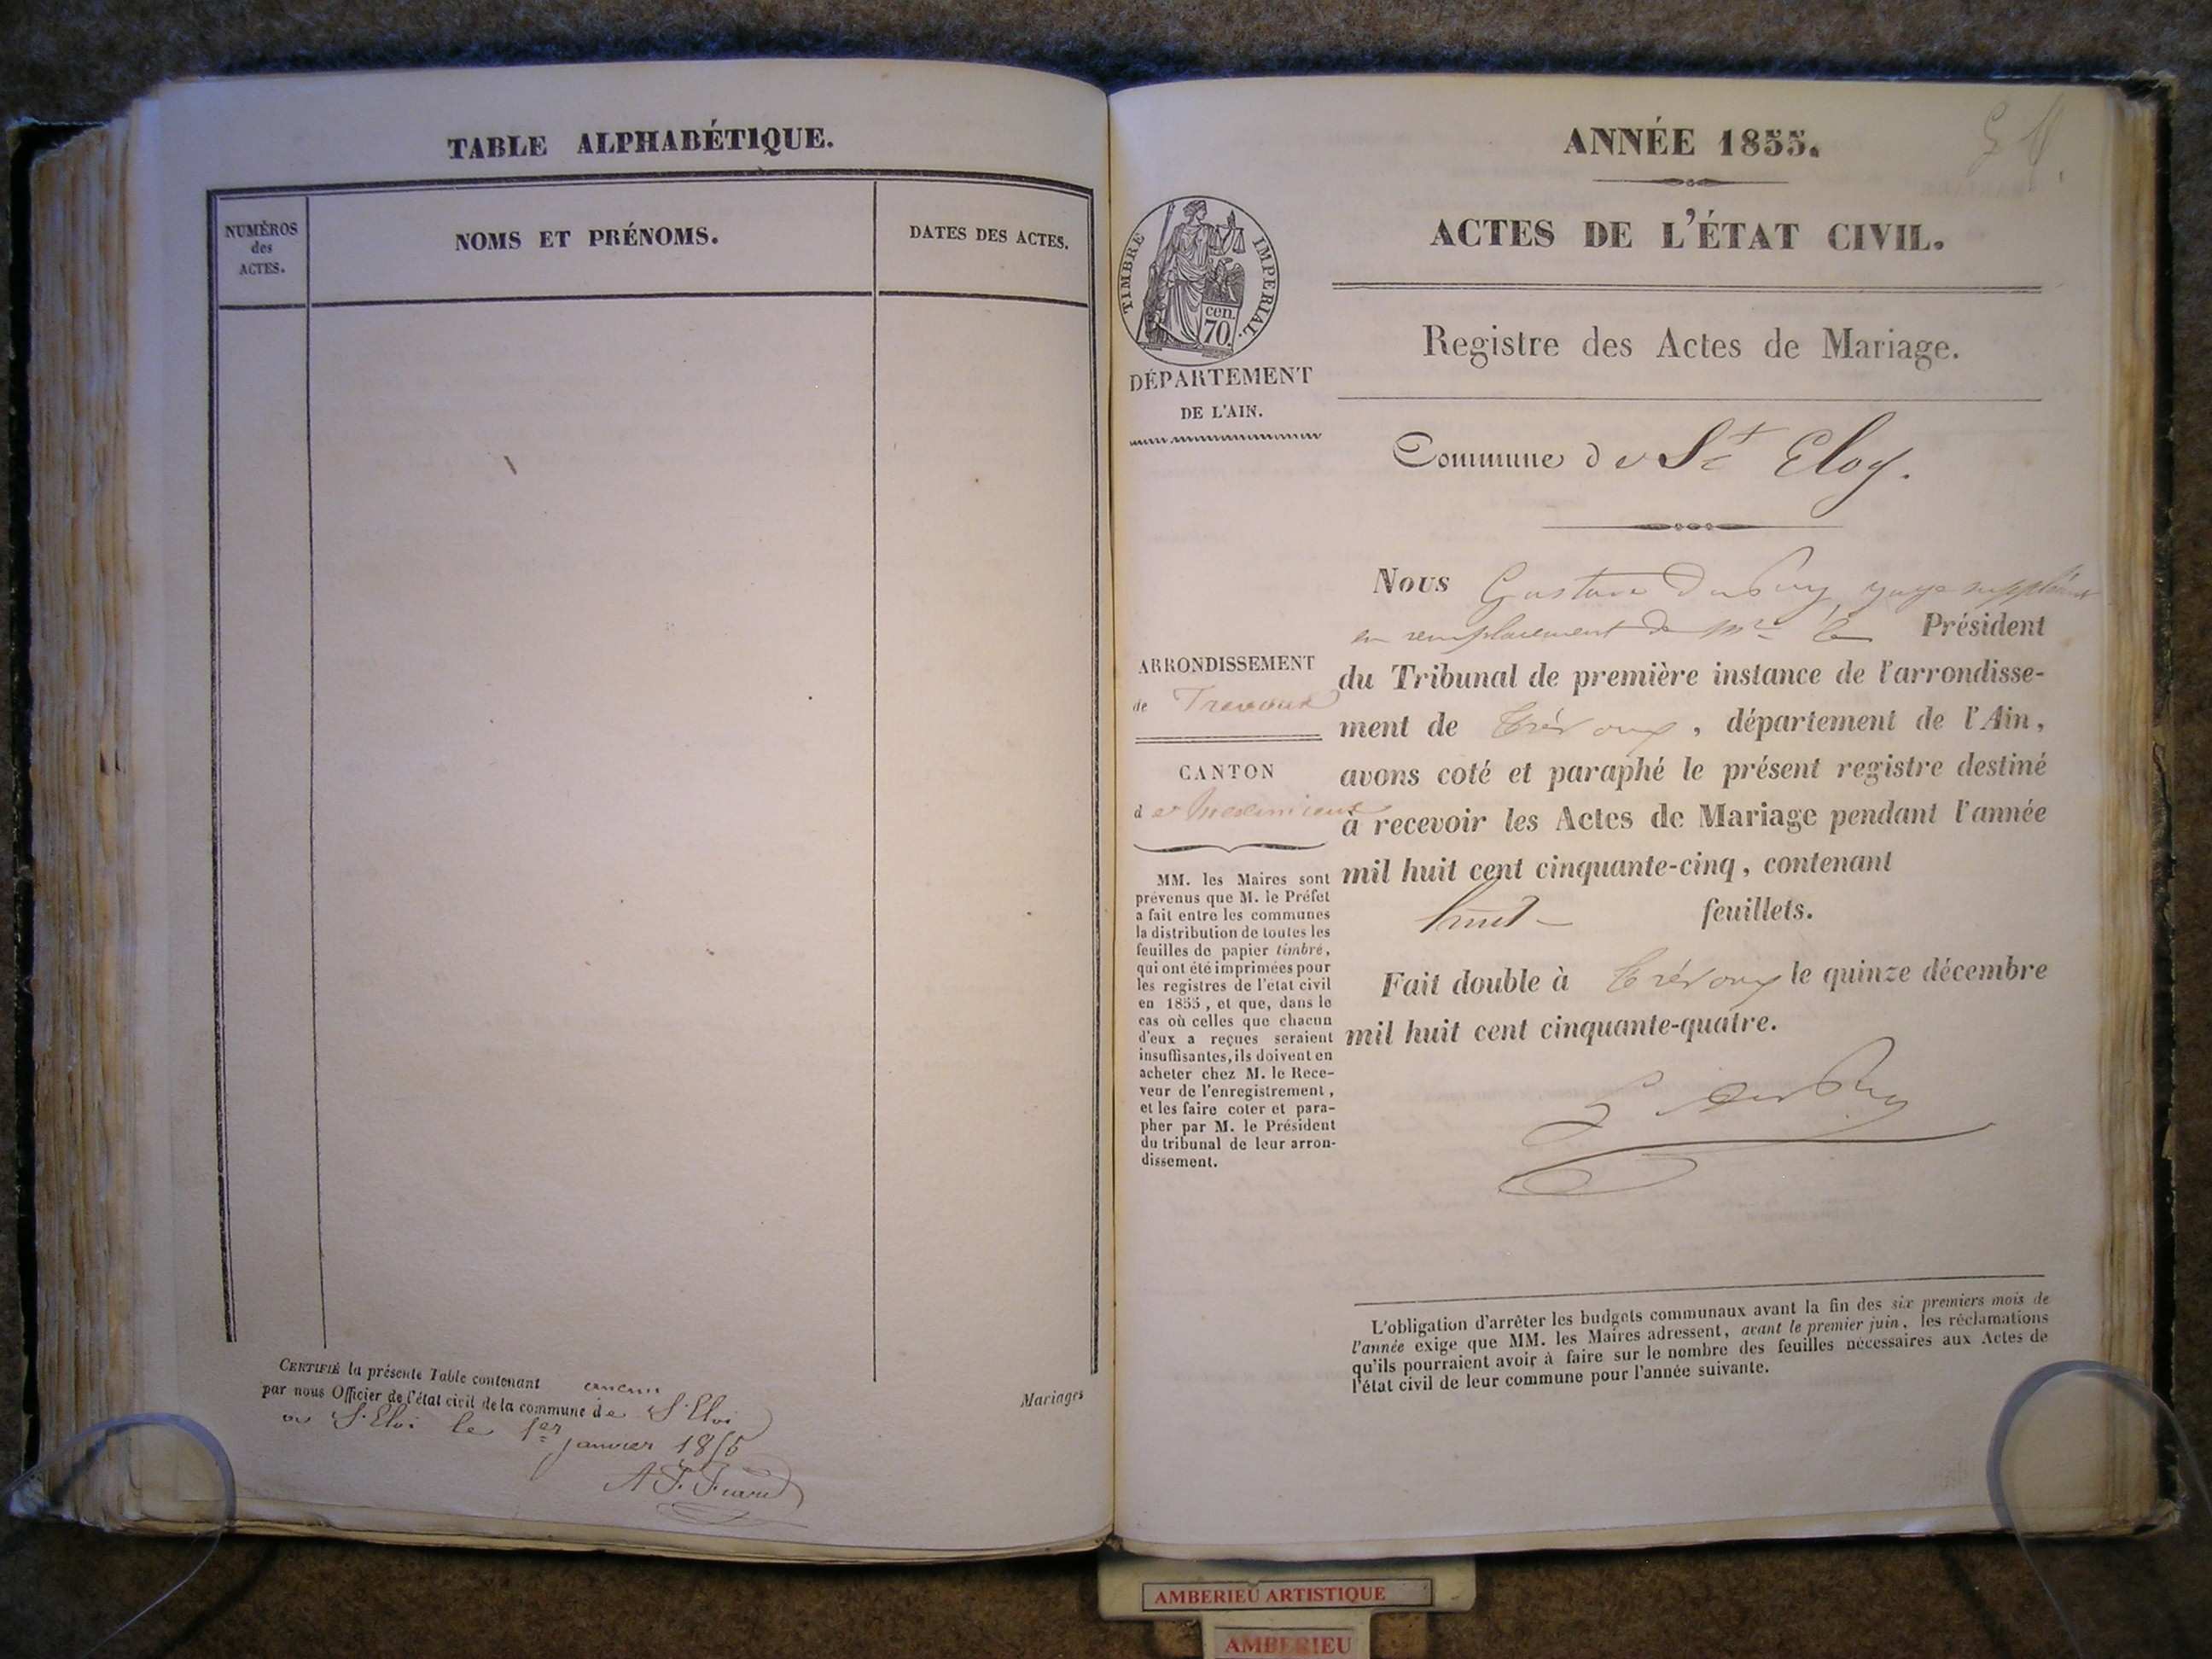 TABLE ALPHABÉTIQUE.
NUMÉROS
des
ACTES.
NOMS ET PRÉNOMS.
DATES DES ACTES.
CERTIFIÉ la présente Table contenant aucun
Mariages
par nous Officier de l'état civil de la commune de St. Eloi
St. Eloi le 1er janvier 1855
ANNÉE 1855.
ACTES DE L'ÉTAT CIVIL.
Registre des Actes de Mariage.
TIMBRE IMPERIAL.
cen.
70.
DÉPARTEMENT
DE L'AIN.
Commune de St Eloy.
ARRONDISSEMENT
de Trevoux
CANTON
de Meximieux
MM. les Maires sont
prévenus que M. le Préfet
a fait entre les communes
la distribution de toutes les
feuilles de papier timbré,
qui ont été imprimées pour
les registres de l'état civil
en 1855, et que, dans le
cas où celles que chacun
d'eux a reçues seraient
insuffisantes, ils doivent en
acheter chez M. le Rece-
veur de l'enregistrement,
et les faire coter et para-
pher par M. le Président
du tribunal de leur arron-
dissement.
Nous Gustave Dupuy, juge suppléant
en remplacement de Mr le Président
du Tribunal de première instance de l'arrondisse-
ment de Trévoux, département de l'Ain,
avons coté et paraphé le présent registre destiné
à recevoir les Actes de Mariage pendant l'année
mil huit cent cinquante-cinq, contenant
huit feuillets.
Fait double à Trévoux le quinze décembre
mil huit cent cinquante-quatre.
G Dupuy
L'obligation d'arrêter les budgets communaux avant la fin des six premiers mois de
l'année exige que MM. les Maires adressent, avant le premier juin, les réclamations
qu'ils pourraient avoir à faire sur le nombre des feuilles nécessaires aux Actes de
l'état civil de leur commune pour l'année suivante.
AMBERIEU ARTISTIQUE
AMBERIEU